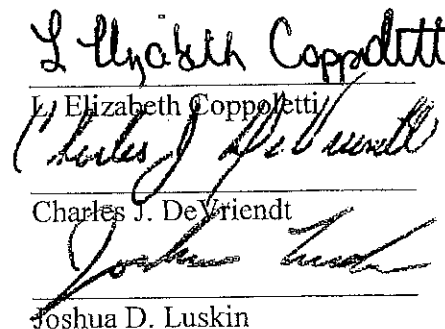 L Elizabeth Coppoletti
L. Elizabeth Coppoletti
Charles J DeVriendt
Charles J. DeVriendt
Joshua Luskin
Joshua D. Luskin